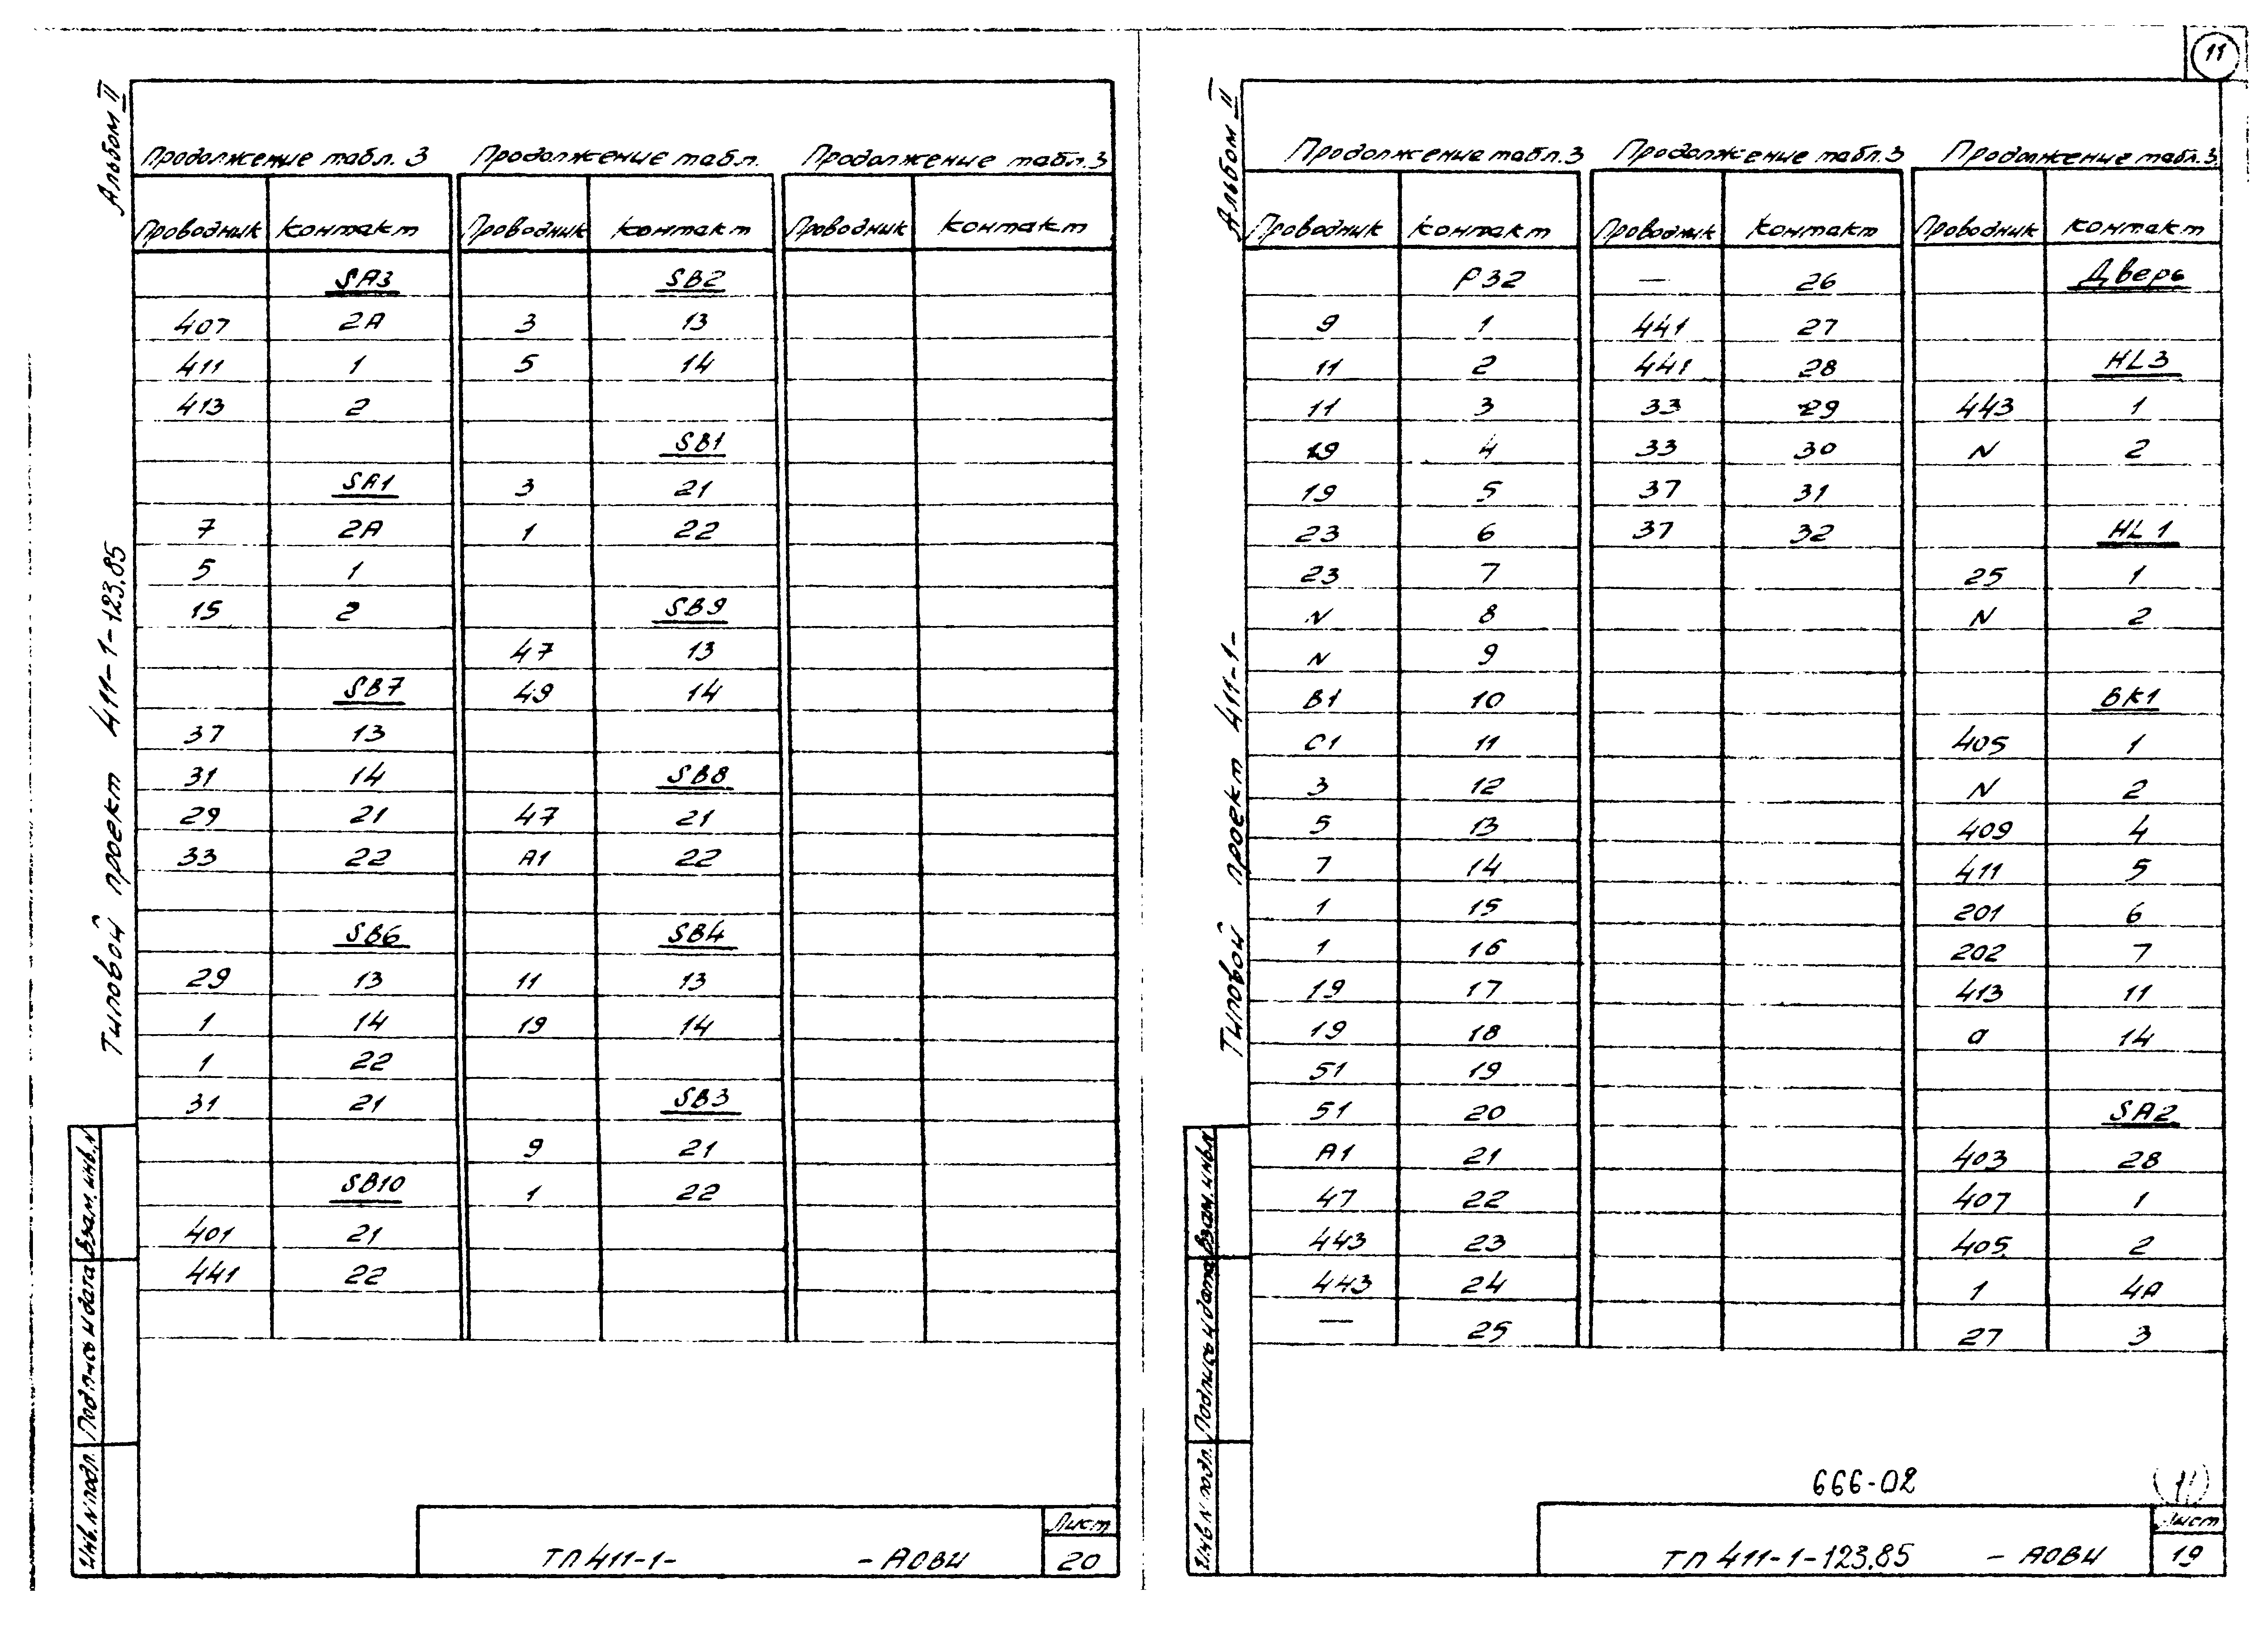 11
Альбом II
Типовой проект 411-1-123.85
Продолжение табл. 3
Проводник Контакт
SA3
407 2А
411 1
413 2
SA1
7 2А
5 1
15 2
SB7
37 13
31 14
29 21
33 22
SB6
29 13
1 14
1 22
31 21
SB10
401 21
441 22
Продолжение табл.
Проводник Контакт
SB2
3 13
5 14
SB1
3 21
1 22
SB9
47 13
49 14
SB8
47 21
А1 22
SB4
11 13
19 14
SB3
9 21
1 22
Продолжение табл.3
Проводник Контакт
Инв.N подл. Подпись и дата Взам. инв.N
ТП 411-1- -АОВИ
Лист
20
Альбом II
Типовой проект 411-1-
Продолжение табл.3
Проводник Контакт
Р32
9 1
11 2
11 3
19 4
19 5
23 6
23 7
N 8
N 9
В1 10
С1 11
3 12
5 13
7 14
1 15
1 16
19 17
19 18
51 19
51 20
А1 21
47 22
443 23
443 24
— 25
Продолжение табл.3
Проводник Контакт
— 26
441 27
441 28
33 29
33 30
37 31
37 32
Продолжение табл.3
Проводник Контакт
Дверь
HL3
443 1
N 2
HL1
25 1
N 2
ВК1
405 1
N 2
409 4
411 5
201 6
202 7
413 11
а 14
SA2
403 28
407 1
405 2
1 4А
27 3
Инв.N подл. Подпись и дата Взам. инв.N
666-02
11
ТП 411-1-123.85 -АОВИ
Лист
19